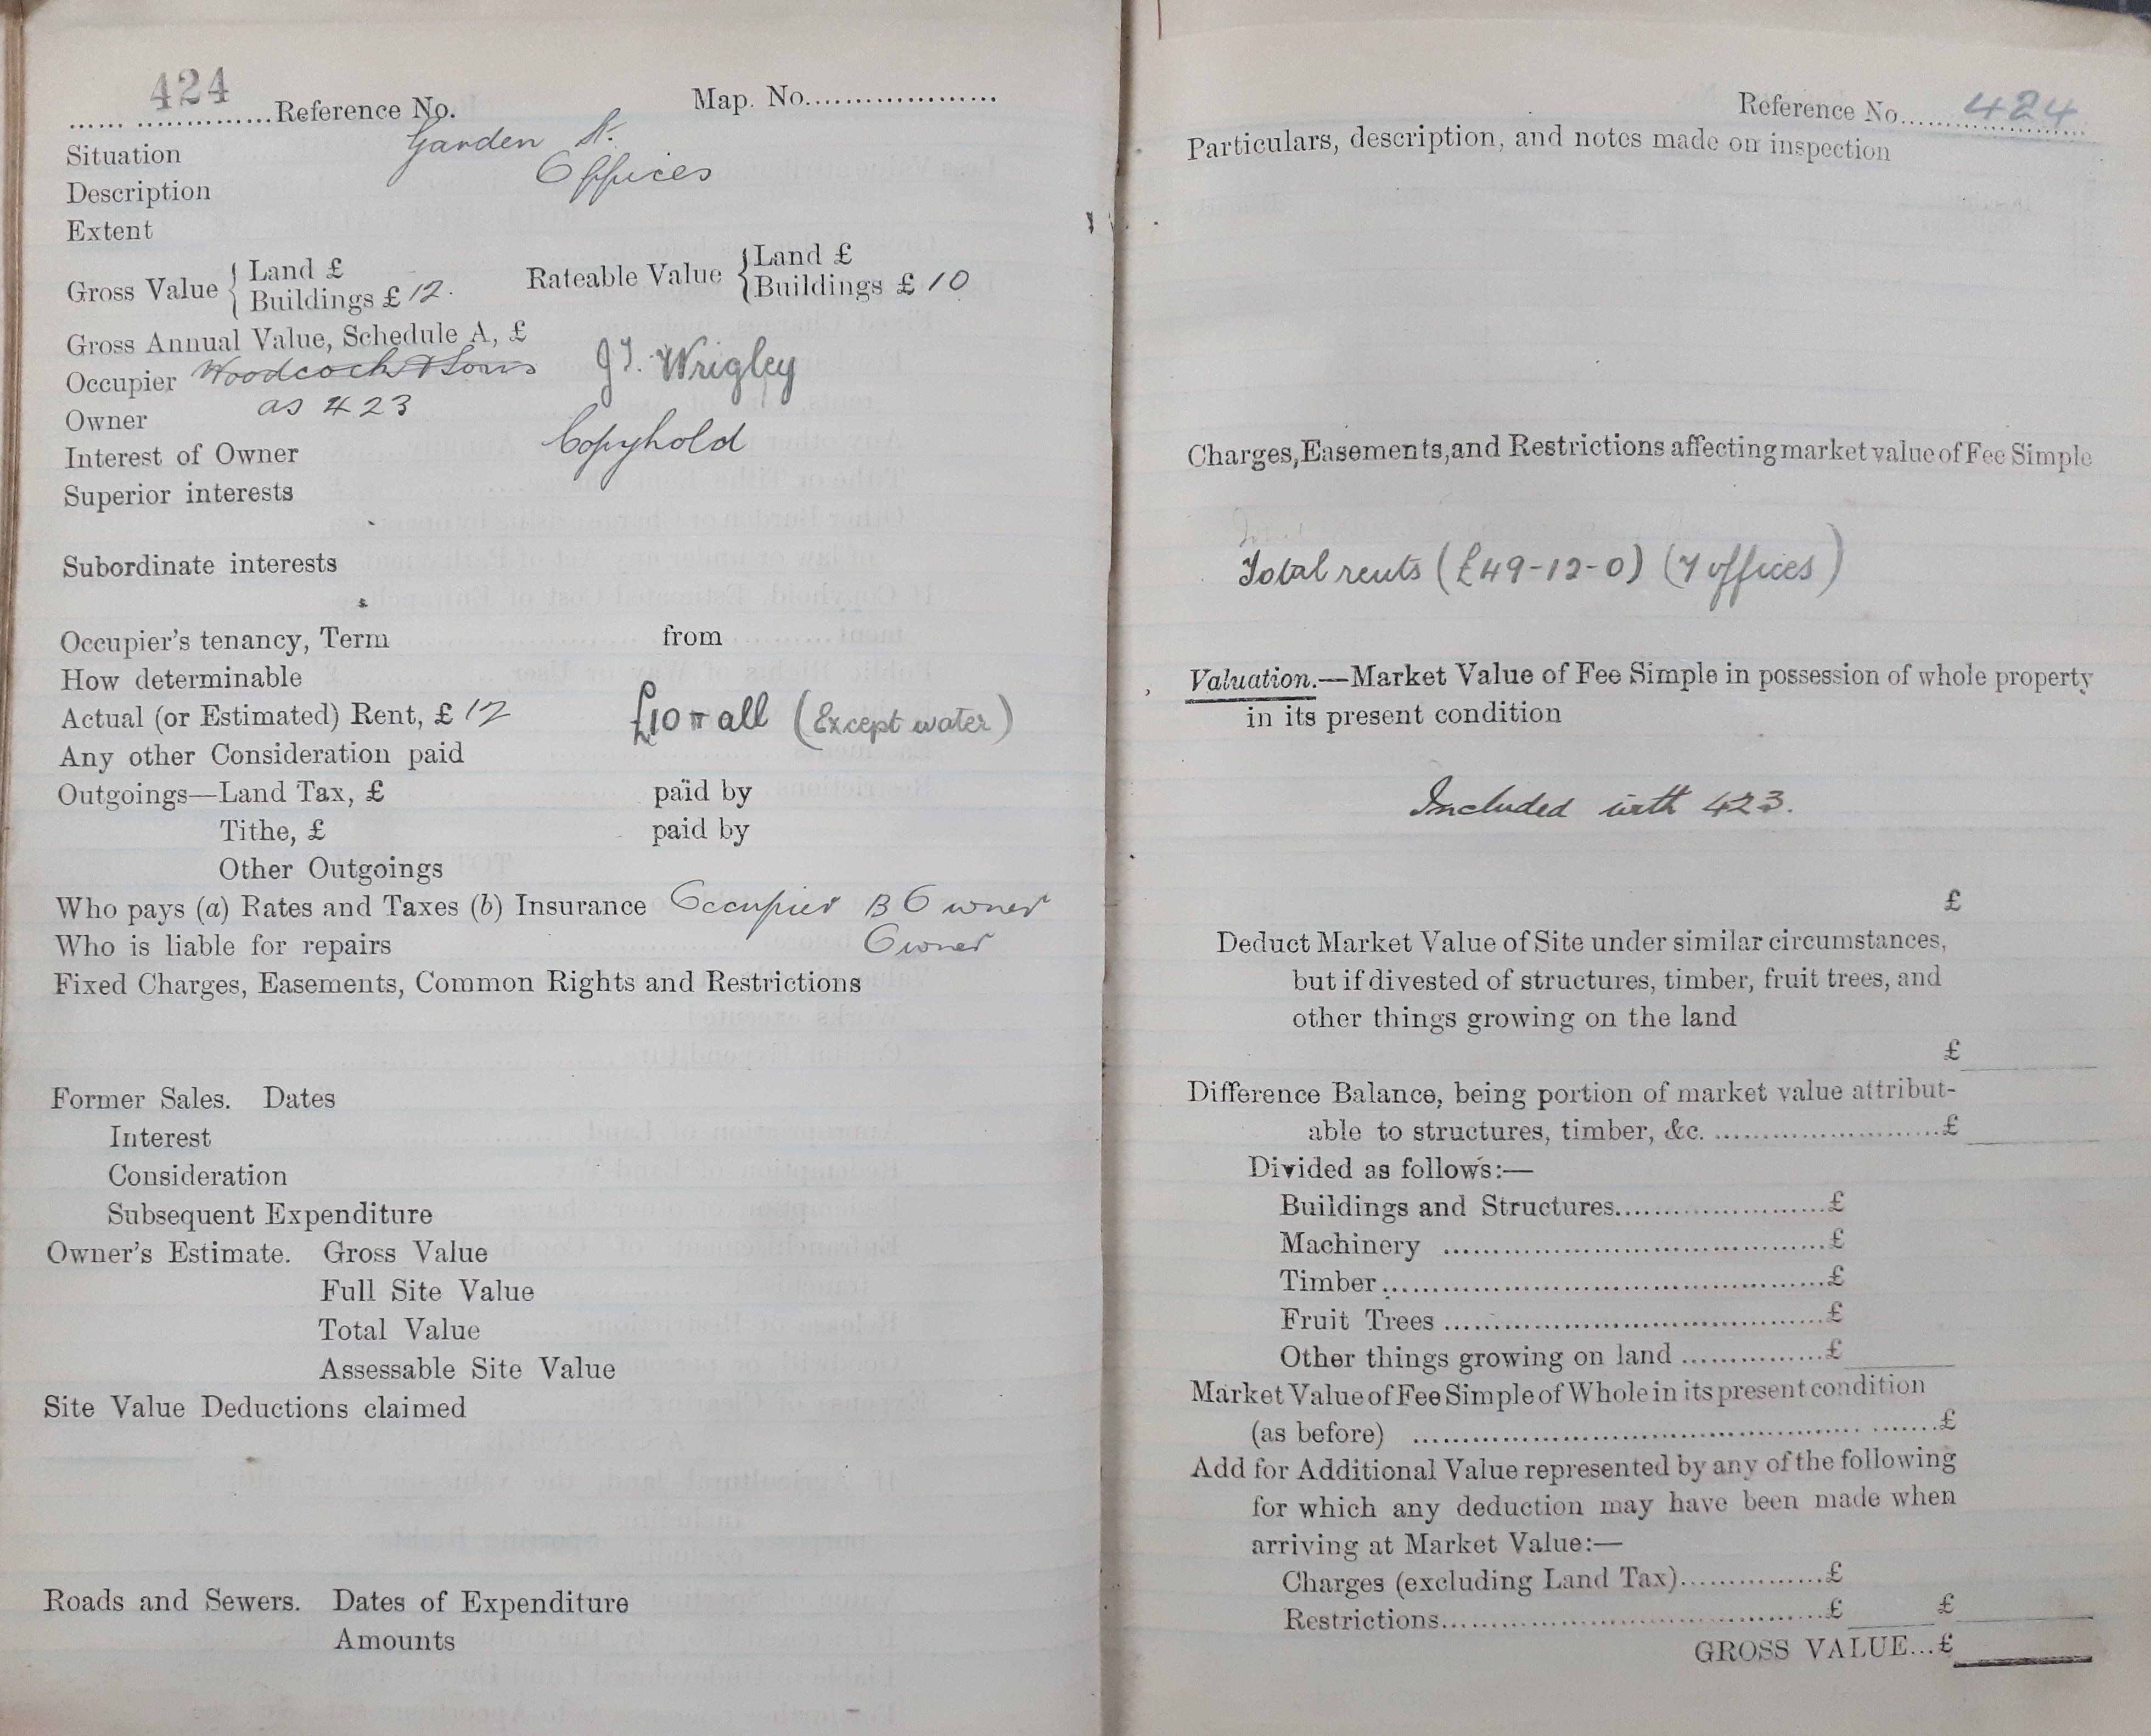 424
...... ..............Reference No.
Map. No....................
Situation Garden St.
Description Offices
Extent
Gross Value { Land £
Buildings £ 12.
Rateable Value { Land £
Buildings £ 10
Gross Annual Value, Schedule A, £
Occupier Woodcock & Sons J T. Wrigley
Owner as 423
Interest of Owner Copyhold
Superior interests
Subordinate interests
Occupier's tenancy, Term from
How determinable
Actual (or Estimated) Rent, £ 12 £10 all (Except water)
Any other Consideration paid
Outgoings—Land Tax, £ paid by
Tithe, £ paid by
Other Outgoings
Who pays (a) Rates and Taxes (b) Insurance Occupier B Owner
Who is liable for repairs Owner
Fixed Charges, Easements, Common Rights and Restrictions
Former Sales. Dates
Interest
Consideration
Subsequent Expenditure
Owner's Estimate. Gross Value
Full Site Value
Total Value
Assessable Site Value
Site Value Deductions claimed
Roads and Sewers. Dates of Expenditure
Amounts
Reference No..... 424
Particulars, description, and notes made on inspection
Charges, Easements, and Restrictions affecting market value of Fee Simple
Total rents (£49-12-0) (7 offices)
Valuation.—Market Value of Fee Simple in possession of whole property
in its present condition
Included with 423.
£
Deduct Market Value of Site under similar circumstances,
but if divested of structures, timber, fruit trees, and
other things growing on the land
£
Difference Balance, being portion of market value attribut-
able to structures, timber, &c. ........................£
Divided as follows:—
Buildings and Structures......................£
Machinery .......................................£
Timber.............................................£
Fruit Trees .......................................£
Other things growing on land ...............£
Market Value of Fee Simple of Whole in its present condition
(as before) ............................................. .......£
Add for Additional Value represented by any of the following
for which any deduction may have been made when
arriving at Market Value:—
Charges (excluding Land Tax)...............£
Restrictions.......................................£ £
GROSS VALUE...£